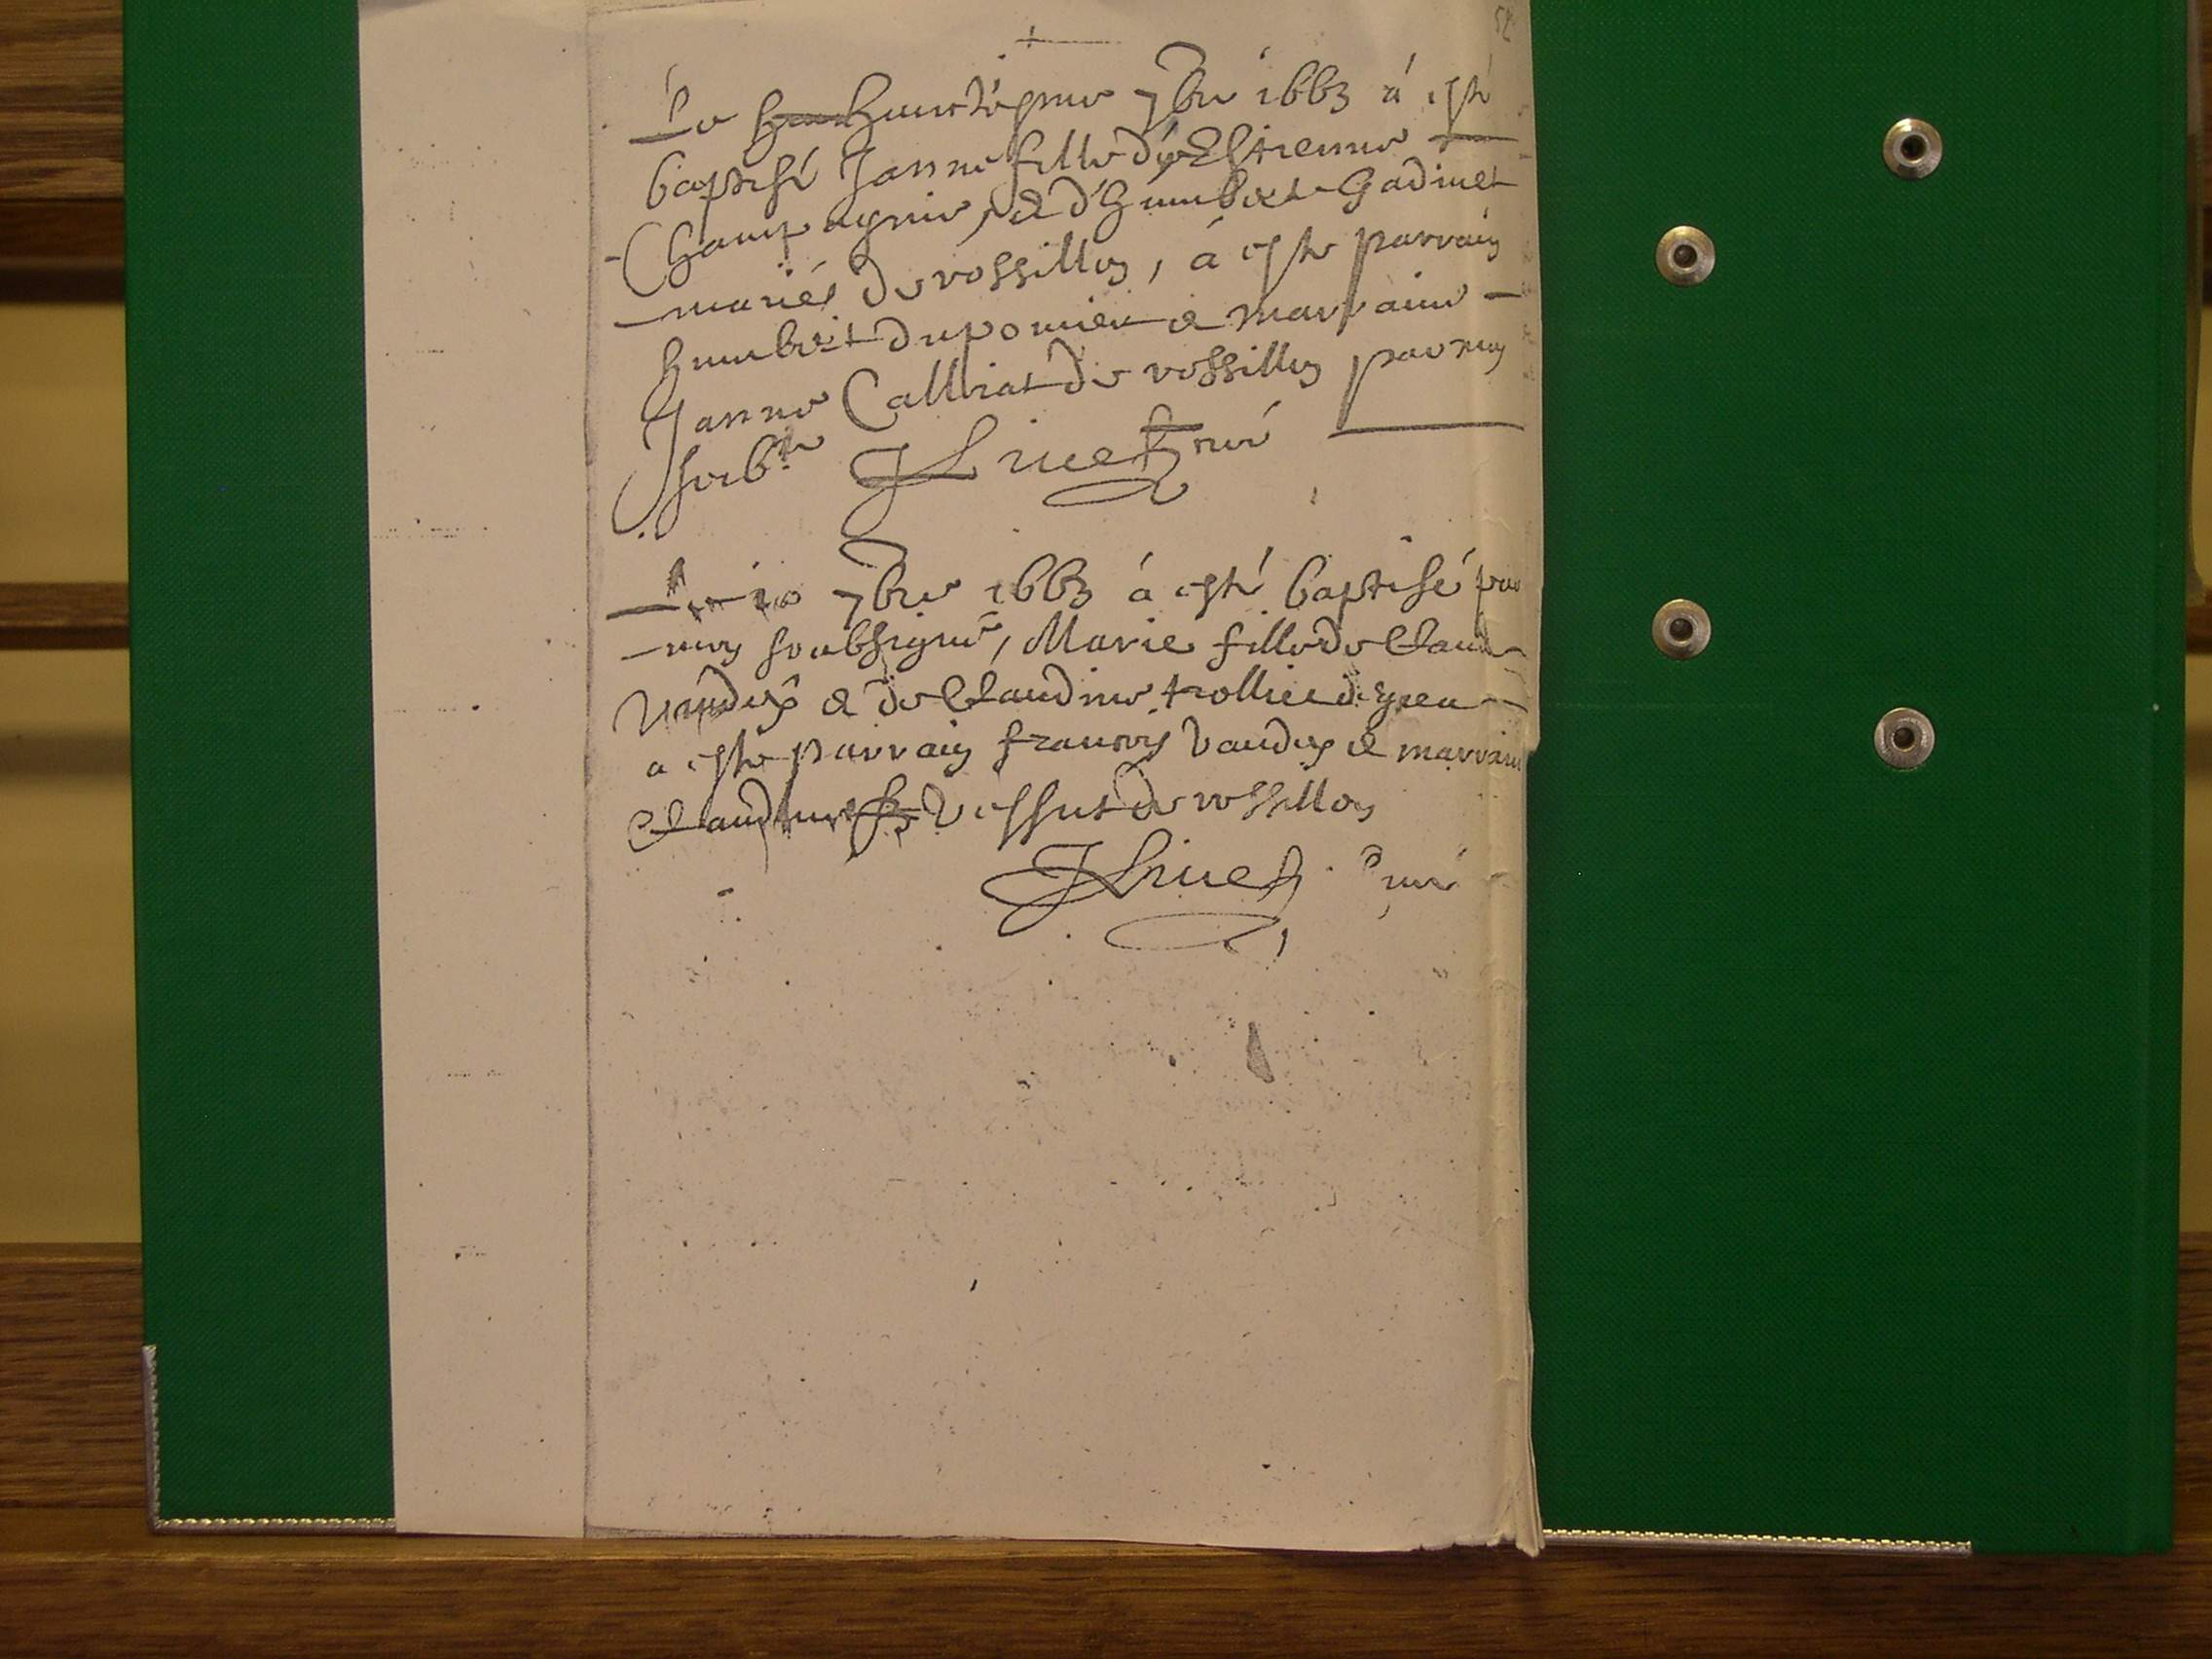 Le huictiesme 7bre 1663 á esté
baptisé Janne fille d'Estienne
Champagnie, & d'humberte Gadinet
mariés de rossillon, á esté parrain
humbert dupomier & marraine
Janne Calliat de rossillon par moy
soubné JLivet curé
Le 10 7bre 1663 á esté baptisé par
moy soubsigné, Marie fille de Claude
Vaudey & de Claudine trollier
a esté parrain francoys Vaudey & marraine
Claudine Vessut de rossillon
JLivet curé